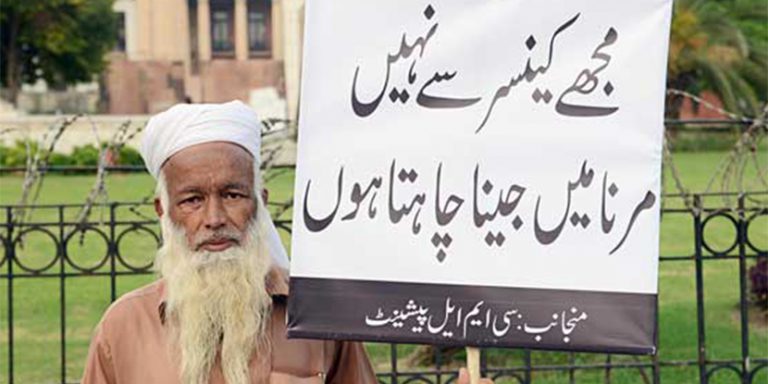 مجھے کینسر سے نہیں
مرنا میں جینا چاہتا ہوں
منجانب: سی ایم ایل پیشینٹ